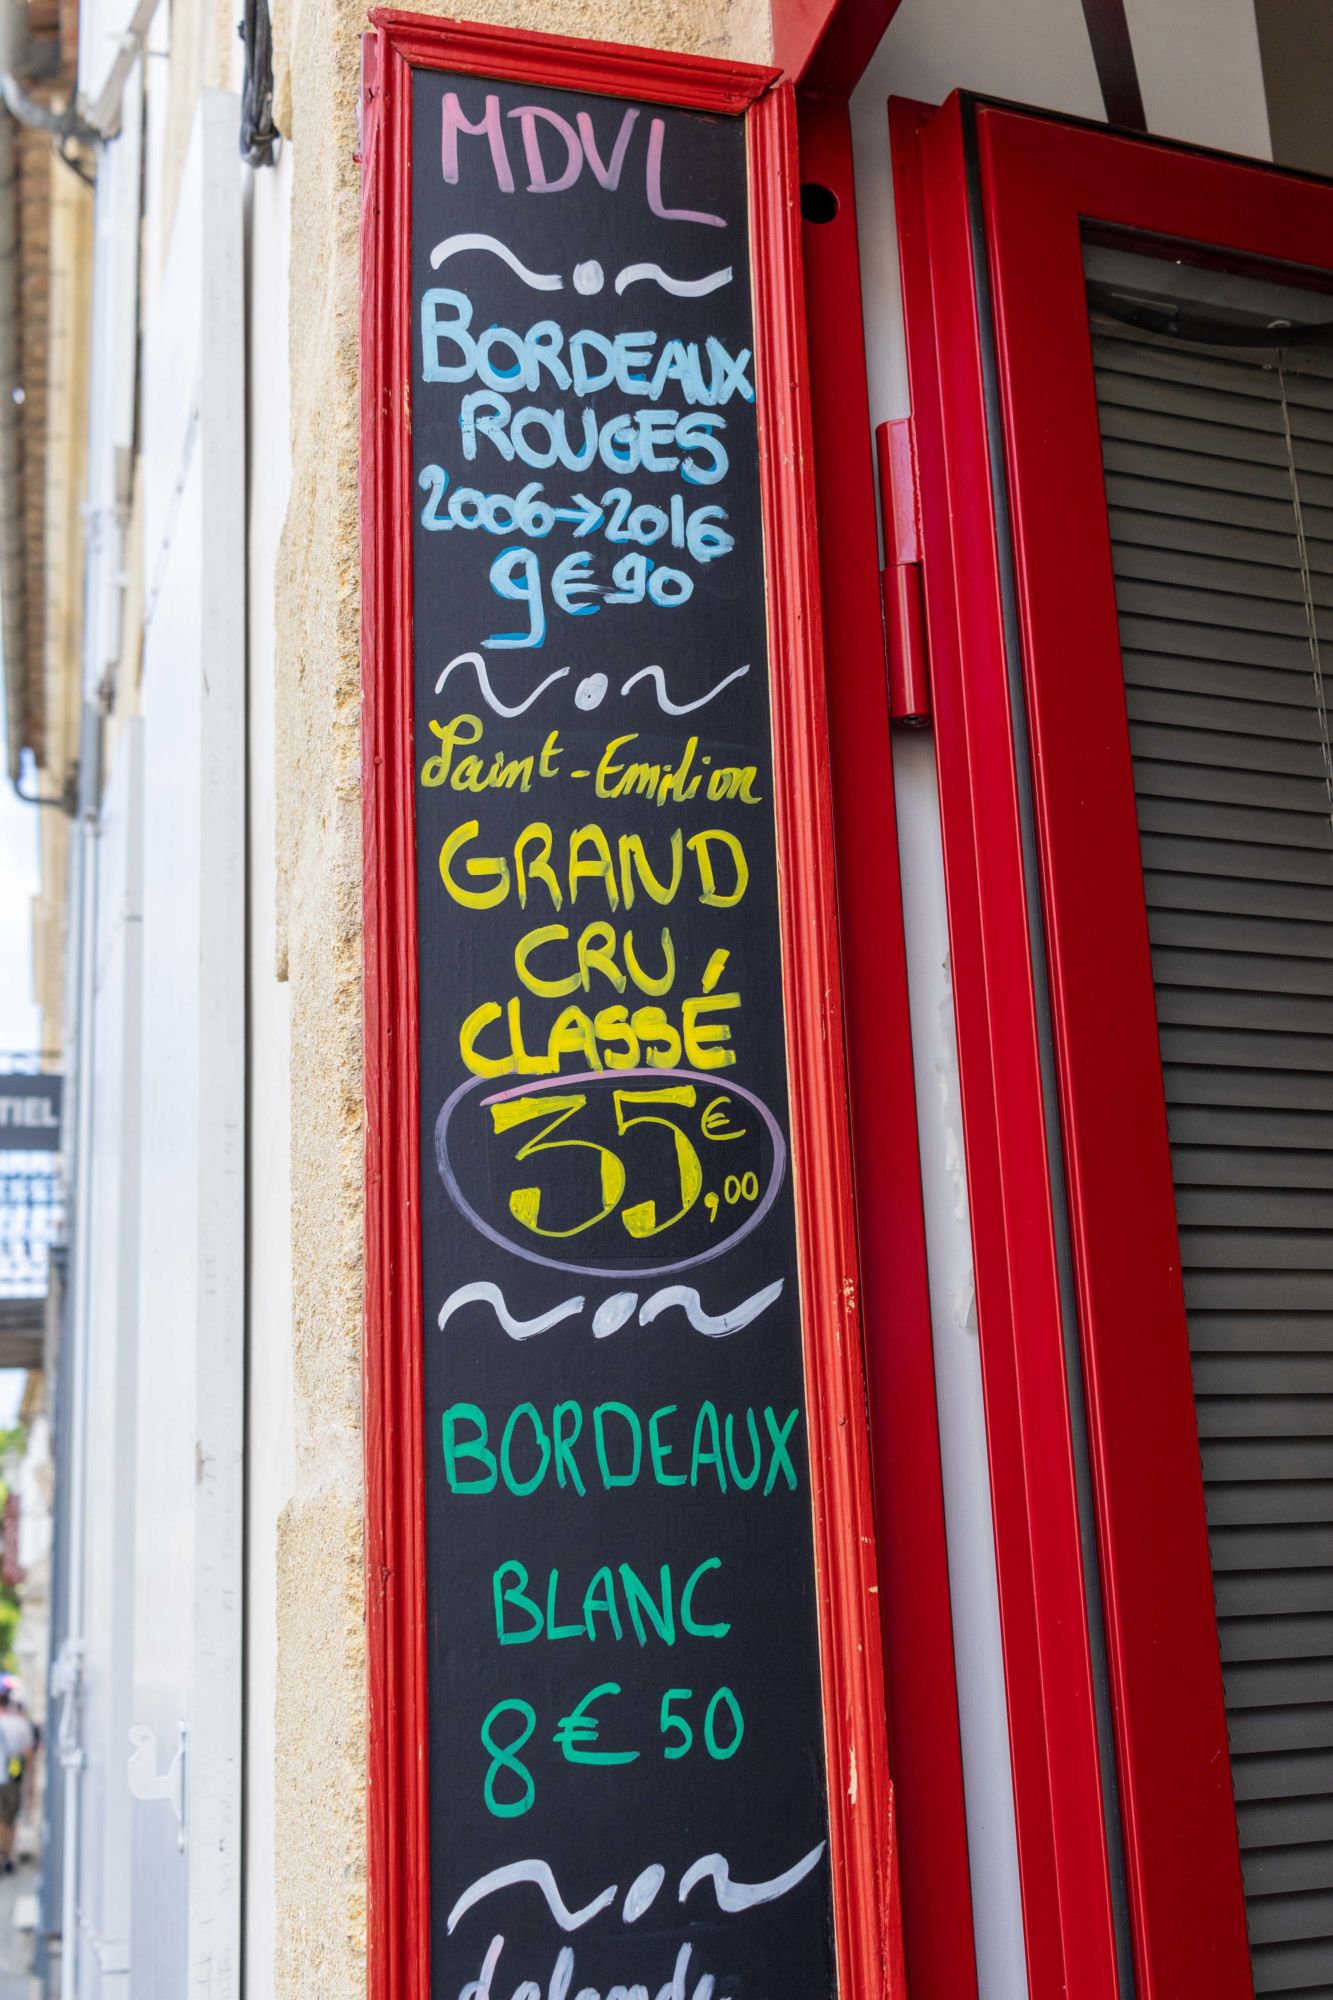 MDVL
BORDEAUX
ROUGES
2006→2016
9€90
Saint-Emilion
GRAND
CRU
CLASSÉ
35€,00
BORDEAUX
BLANC
8€50
TIEL